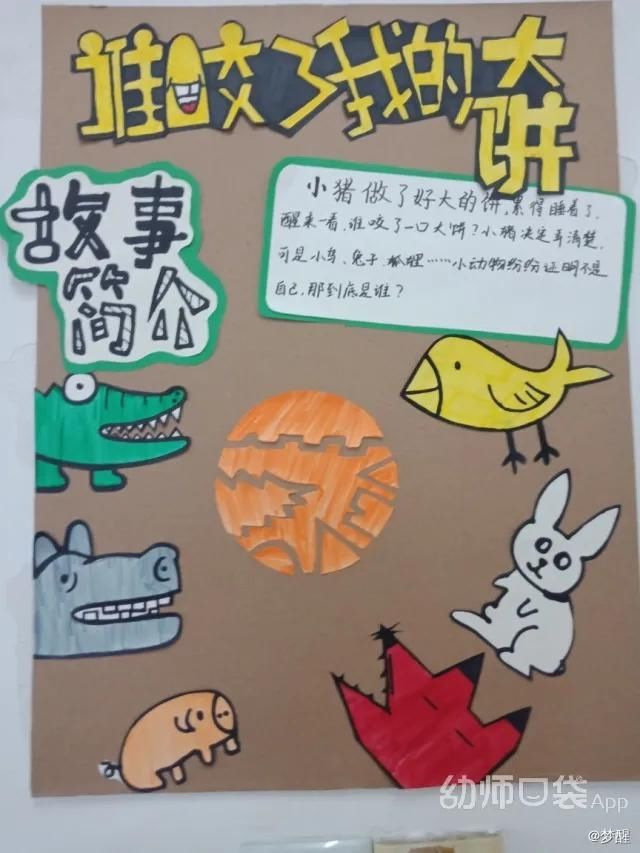 谁咬了我的大饼
故事
简介
小猪做了好大的饼,累得睡着了,
醒来一看,谁咬了一口大饼?小猪决定弄清楚,
可是小鸟、兔子、狐狸……小动物纷纷证明不是
自己,那到底是谁?
幼师口袋App
@梦醒